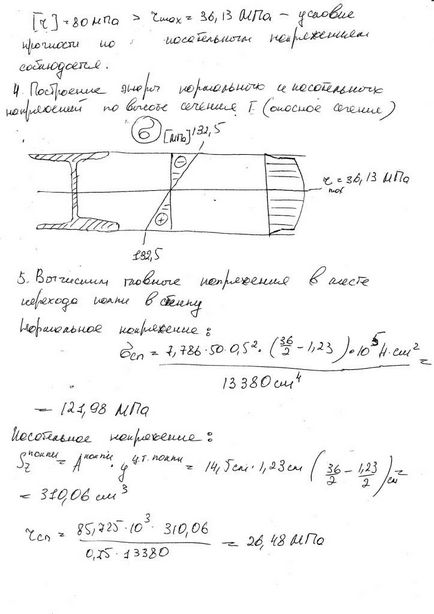 [τ] = 80 МПа > τmax = 36,13 МПа – условие
прочности по касательным напряжениям
соблюдается.
4. Построение эпюры нормальных и касательных
напряжений по высоте сечения Г (опасное сечение)
σ [МПа] 132,5
⊖
τmax = 36,13 МПа
⊕
132,5
5. Вычислим главные напряжения в месте
перехода полки в стенку
Нормальное напряжение:
σсп = 7,786·50·0,5²·(36/2 – 1,23)·10⁵ Н·см² / 13380 см⁴ =
= 121,98 МПа
Касательное напряжение:
Sz полки = A полки · y ц.т. полки = 14,5 см · 1,23 см (36/2 – 1,23/2) см =
= 310,06 см³
τсп = 85,725·10³ · 310,06 / 0,75·13380 = 26,48 МПа